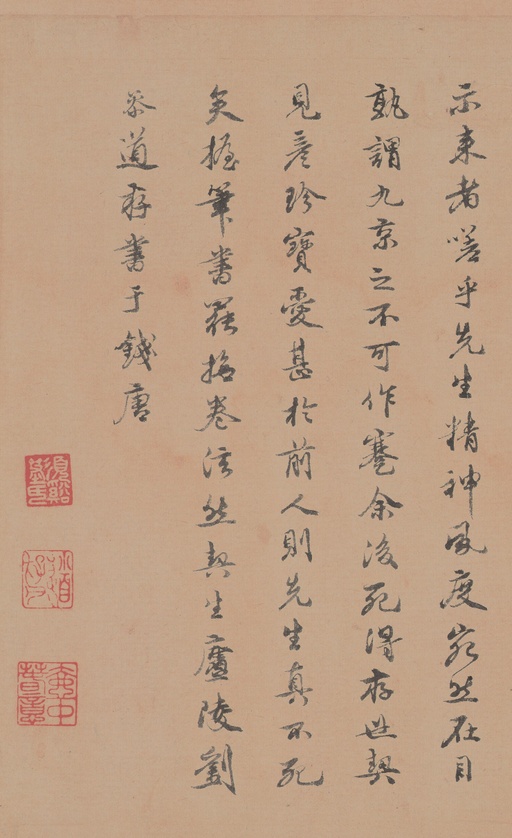 示来者嗟乎先生精神風度宛然在目
孰謂九京之不可作蹇余後死得存世契
見彦珍寶愛甚於前人則先生真不死
矣握筆書罷掩卷泫然契生廬陵劉
恭道存書于錢唐